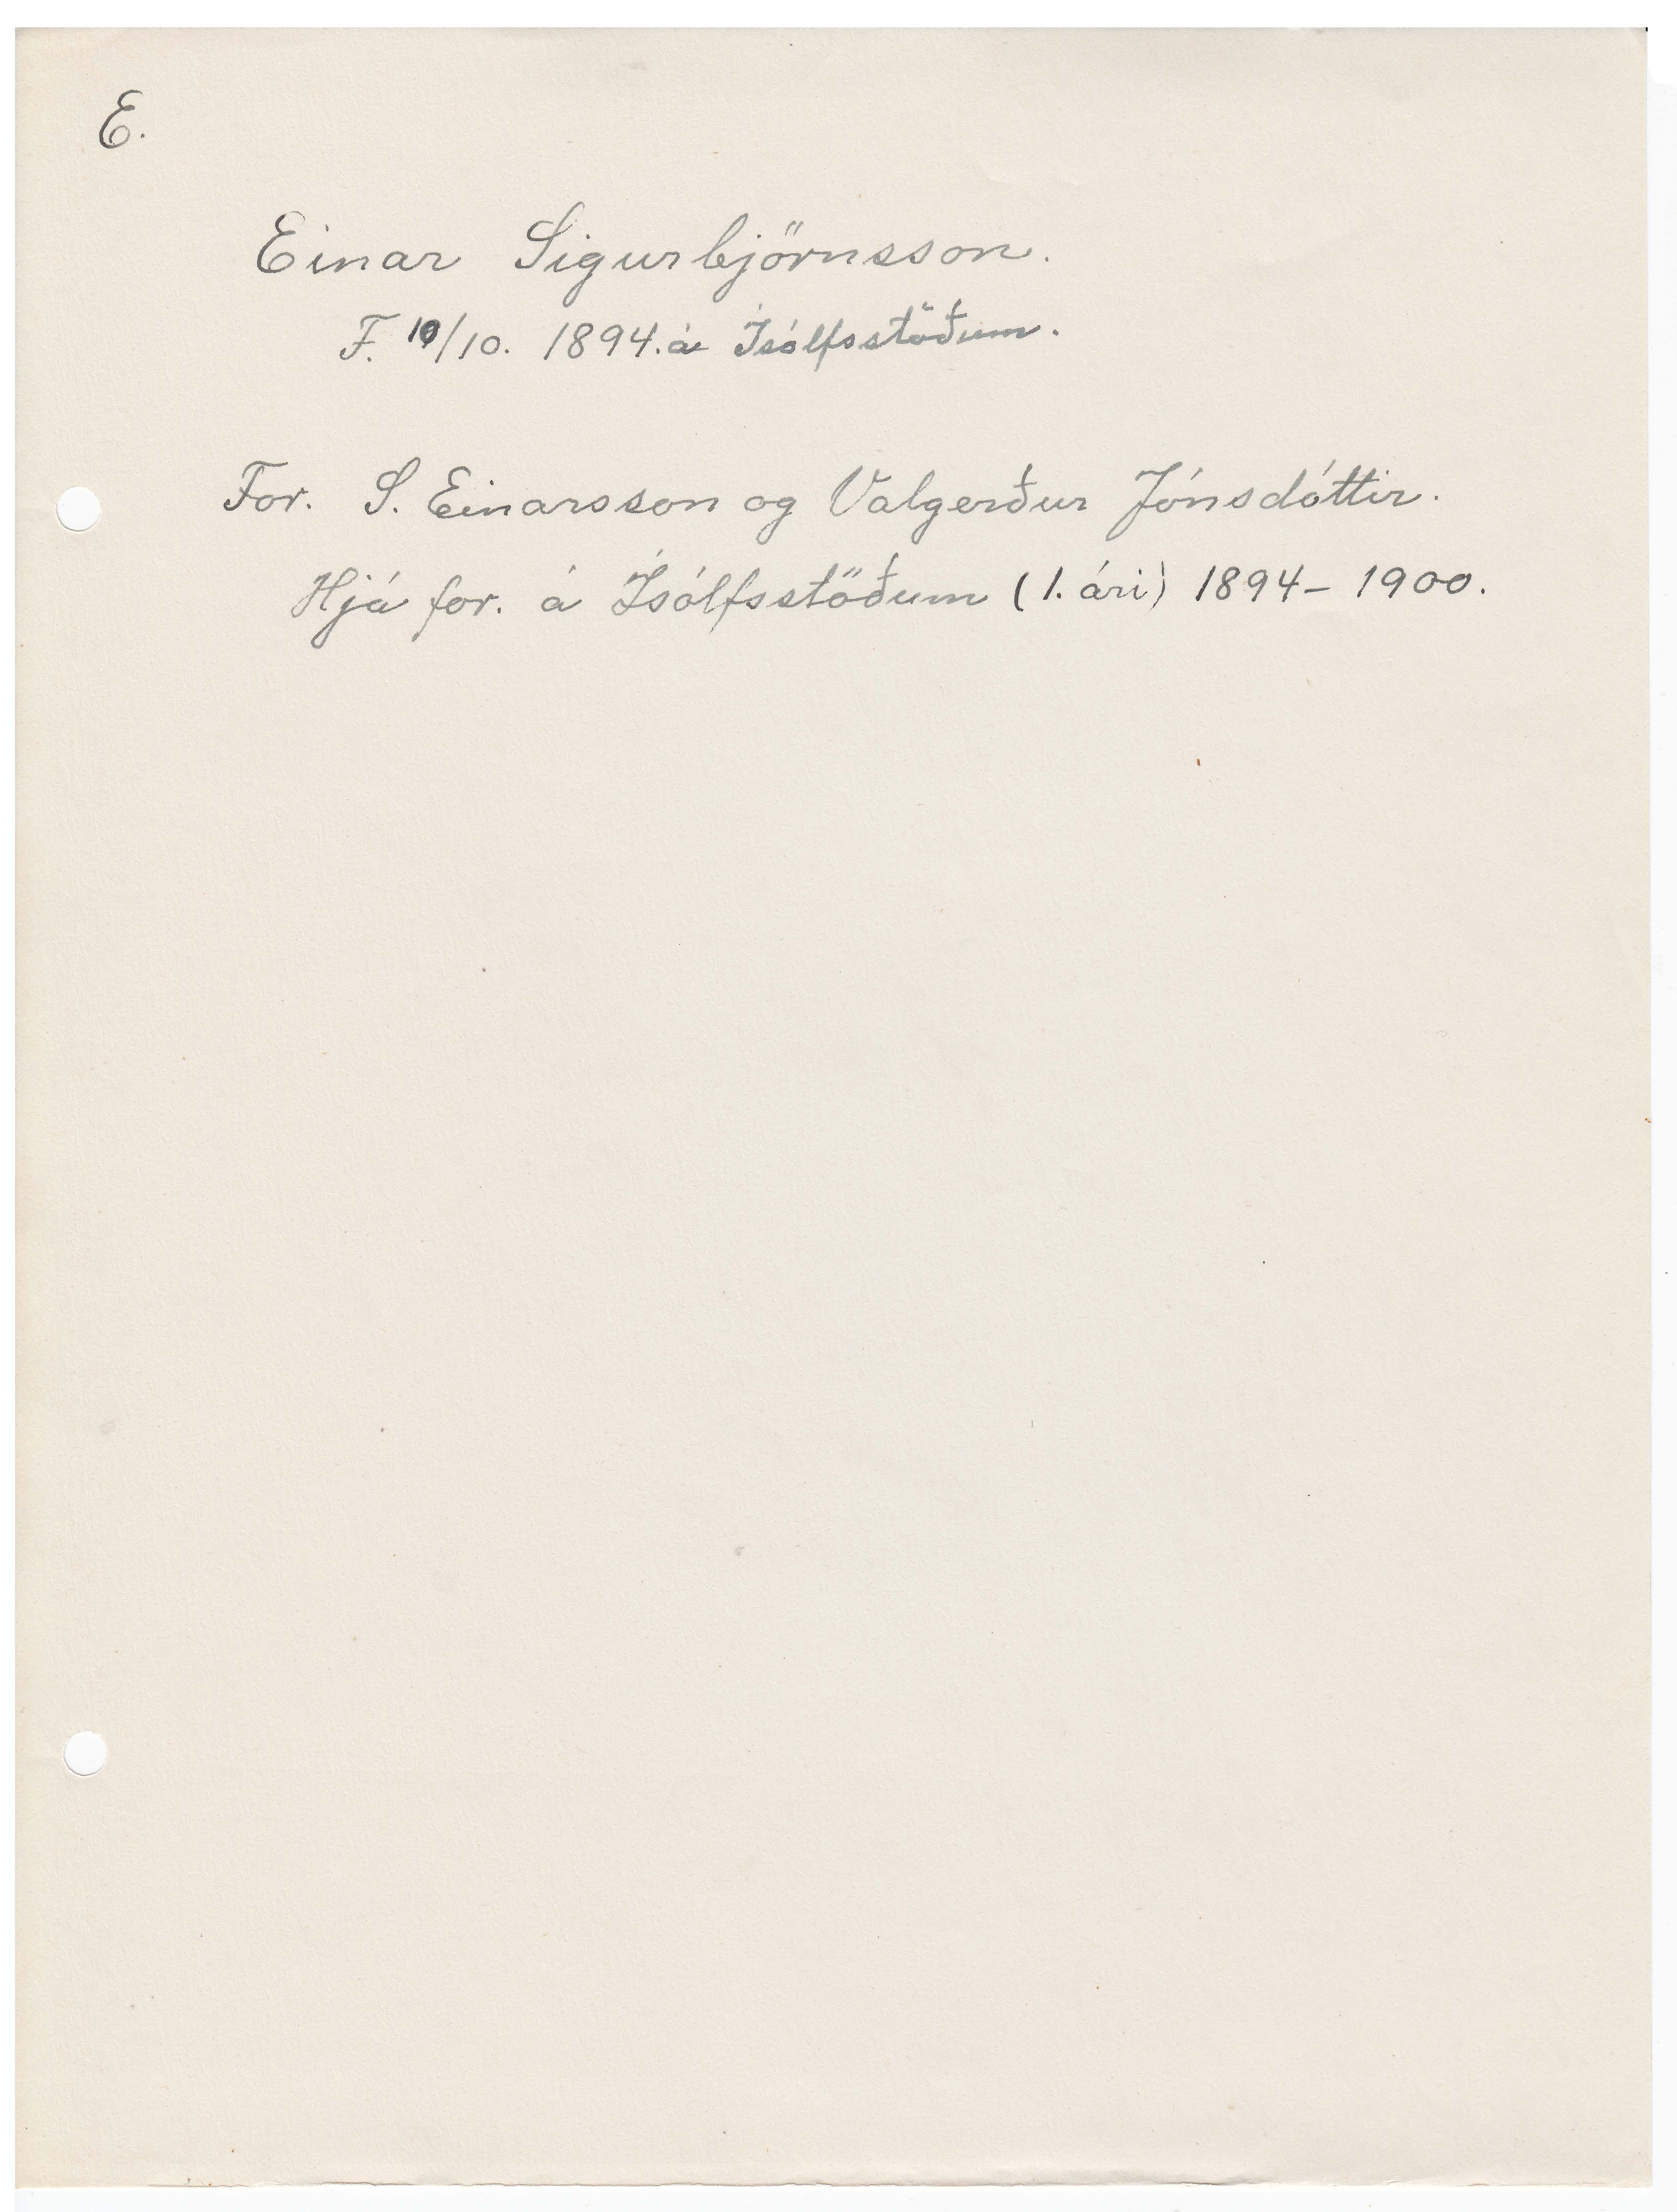 E.
Einar Sigurbjörnsson.
F. 10/10. 1894. á Ísólfsstöðum.
For. S. Einarsson og Valgerður Jónsdóttir.
Hjá for. á Ísólfsstöðum (1. ári) 1894 - 1900.